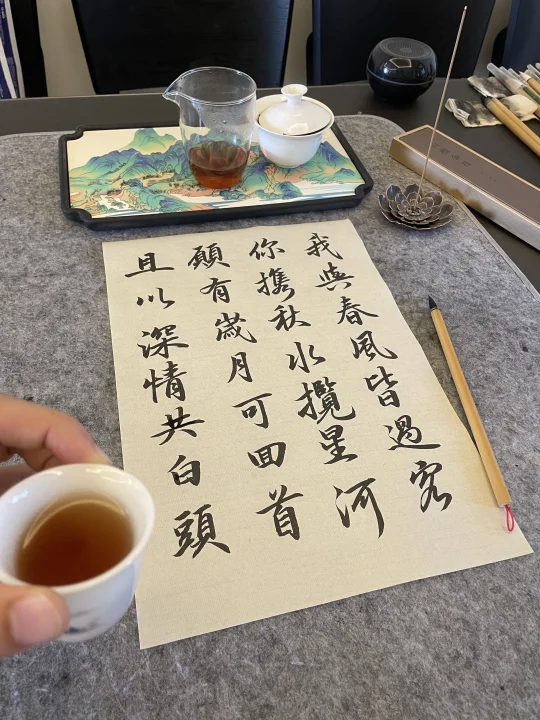 我與春風皆過客
你携秋水攬星河
願有歲月可回首
且以深情共白頭